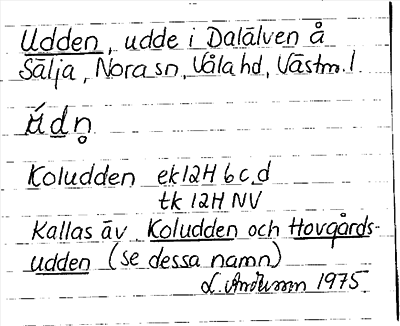 Udden, udde i Dalälven å
Sälja, Nora sn, Våla hd, Västm. l.
Koludden ek 12H 6 c, d
tk 12H NV
Kallas äv Koludden och Hovgårds-
udden (se dessa namn)
L. Andersson 1975